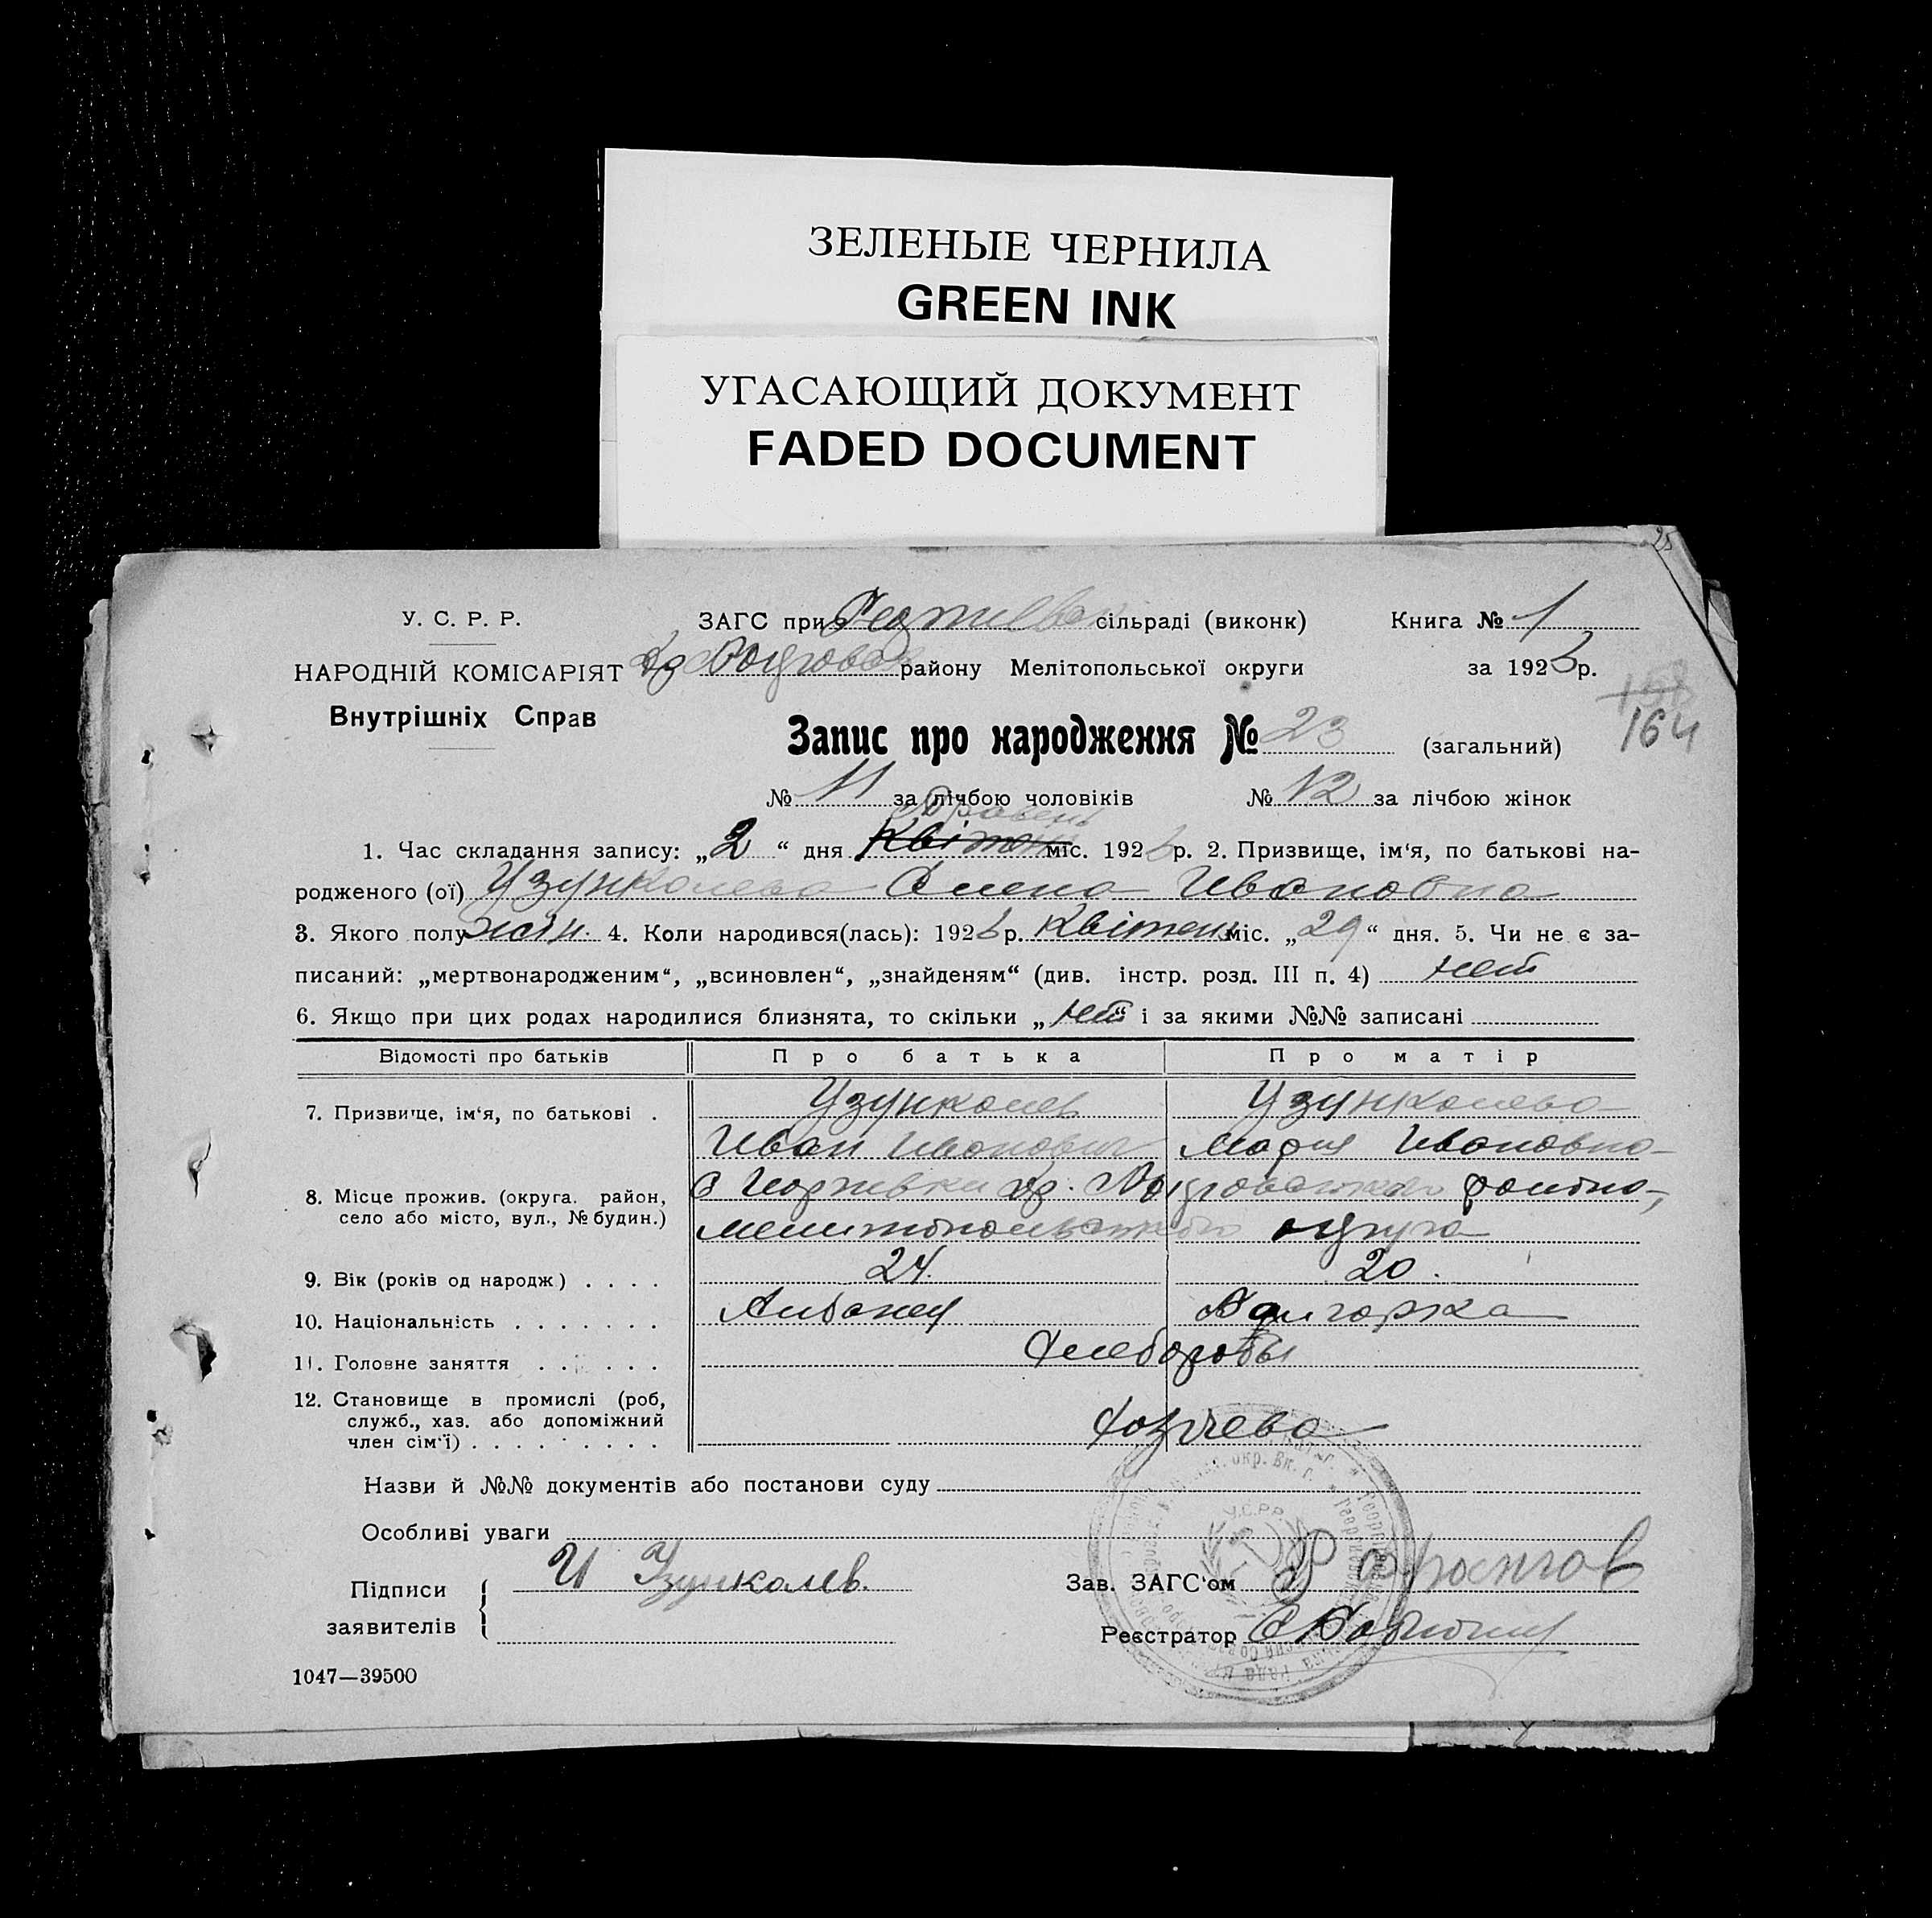 ЗЕЛЕНЫЕ ЧЕРНИЛА
GREEN INK
УГАСАЮЩИЙ ДОКУМЕНТ
FADED DOCUMENT
25
У. С. Р. Р. ЗАГС при сільраді (виконк) Книга № 1
НАРОДНІЙ КОМІСАРІЯТ району Мелітопольської округи за 1926 р.
164
Внутрішніх Справ
Запис про народження № 23 (загальний)
№ 11 за лічбою чоловіків № 12 за лічбою жінок
Травень
1. Час складання запису: „2“ дня Квітень міс. 1926 р. 2. Призвище, ім‘я, по батькові на-
родженого (ої) Узунколева Елена Ивановна
3. Якого полу жін. 4. Коли народився(лась): 1926 р. Квітень міс. „29“ дня. 5. Чи не є за-
писаний: „мертвонародженим“, „всиновлен“, „знайденям“ (див. інстр. розд. III п. 4) нет
6. Якщо при цих родах народилися близнята, то скільки „нет“ і за якими №№ записані
Відомості про батьків Про батька Про матір
7. Призвище, ім‘я, по батькові . Узунколев Узунколева
Иван Иванович Мария Ивановна
8. Місце прожив. (округа. район, село або місто, вул., № будин.) района,
Мелитопольского округа
9. Вік (років од народж) . . . . 24. 20.
10. Національність . . . . . . . Албанец Болгарка
11. Головне заняття . . . . . . Хлеборобы
12. Становище в промислі (роб, служб., хаз. або допоміжний член сім‘ї) . . . . . . . . . Хозяева
Назви й №№ документів або постанови суду
Особливі уваги
У.С.Р.Р.
Підписи заявителів И Узунколев.
Зав. ЗАГС‘ом
Реєстратор
1047—39500